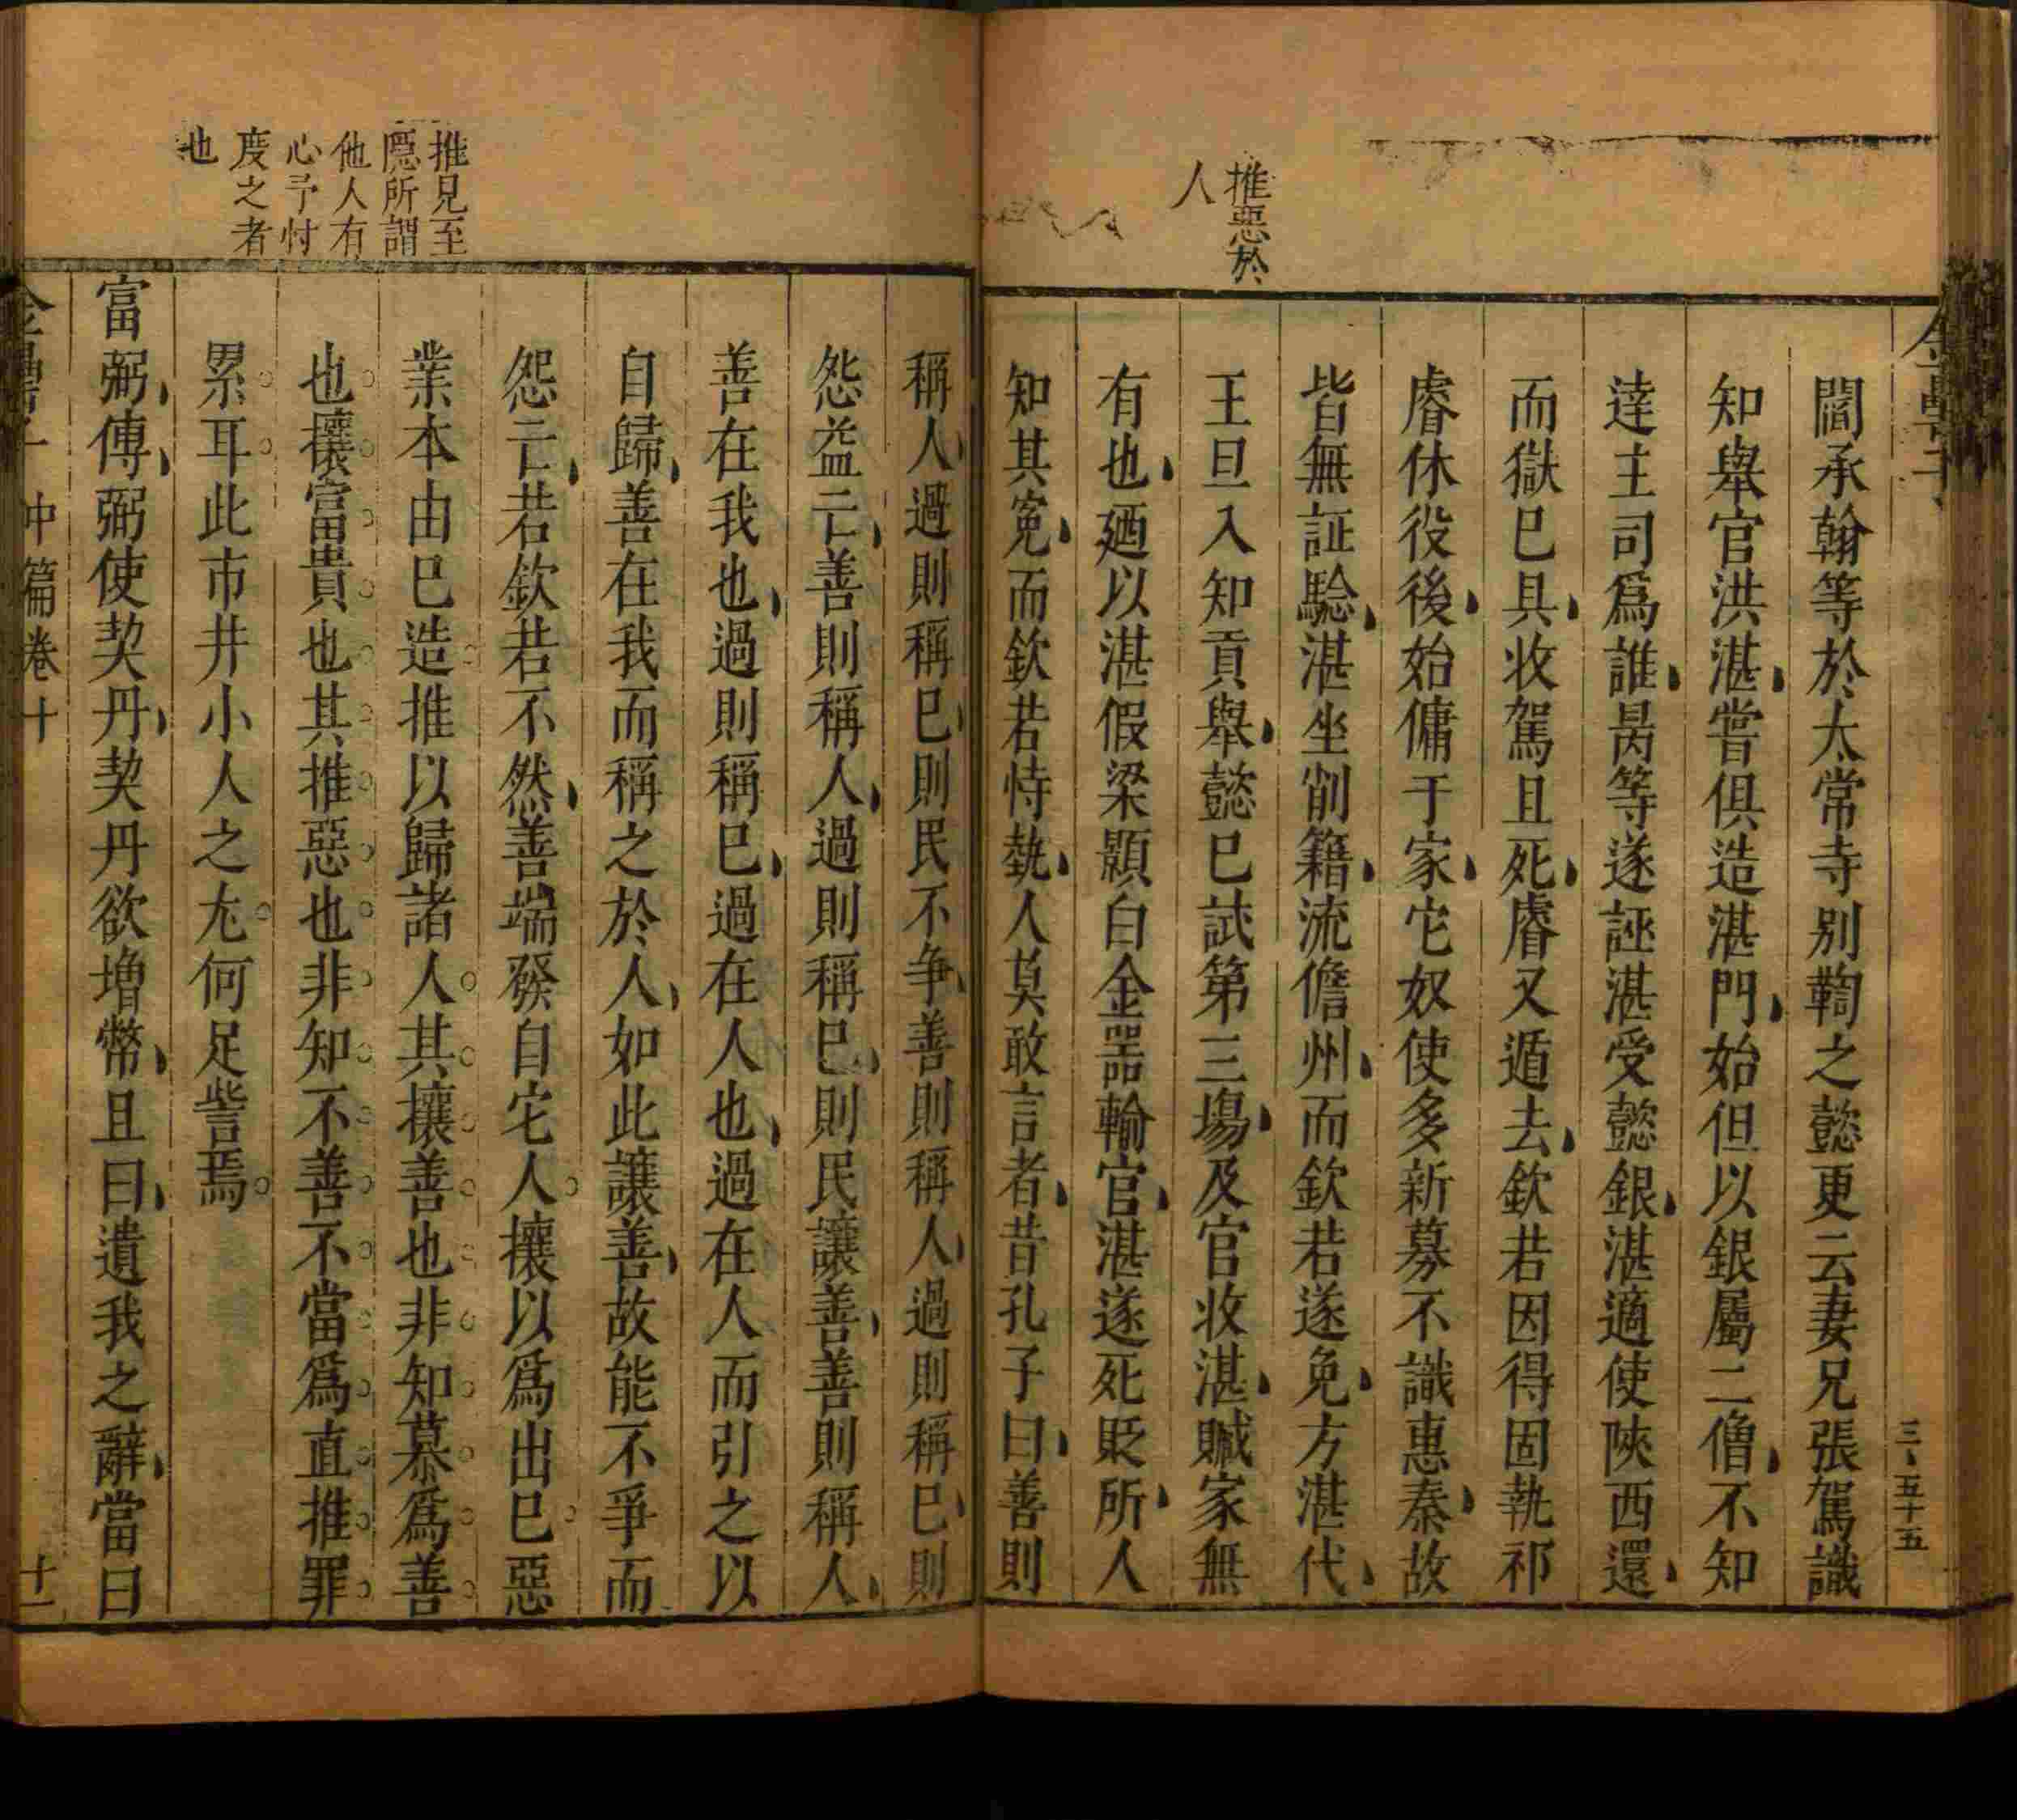 推惡於
人
三五十五
閻承翰等於太常寺别鞫之懿更云妻兄張駕識
知舉官洪湛嘗俱造湛門始但以銀屬二僧不知
達主司爲誰昺等遂誣湛受懿銀湛適使陜西還
而獄巳具收駕且死睿又遁去欽若因得固執祁
睿休役後始傭于家它奴使多新募不識惠秦故
皆無証驗湛坐削籍流儋州而欽若遂免方湛代
王旦入知貢舉懿巳試第三場及官收湛贓家無
有也廼以湛假梁顥白金噐輸官湛遂死貶所人
知其寃而欽若恃埶人莫敢言者昔孔子曰善則
推見至
隱所謂
他人有
心予忖
度之者
也
稱人過則稱巳則民不争善則稱人過則稱巳則
怨益亡善則稱人過則稱巳則民讓善善則稱人
善在我也過則稱巳過在人也過在人而引之以
自歸善在我而稱之於人如此讓善故能不爭而
怨亡若欽若不然善端發自它人攘以爲出巳惡
業本由巳造推以歸諸人其攘善也非知慕爲善
也攘富貴也其推惡也非知不善不當爲直推罪
累耳此市井小人之尤何足訾焉
富弼傳弼使契丹契丹欲増幣且曰遺我之辭當曰
中篇卷十
十一